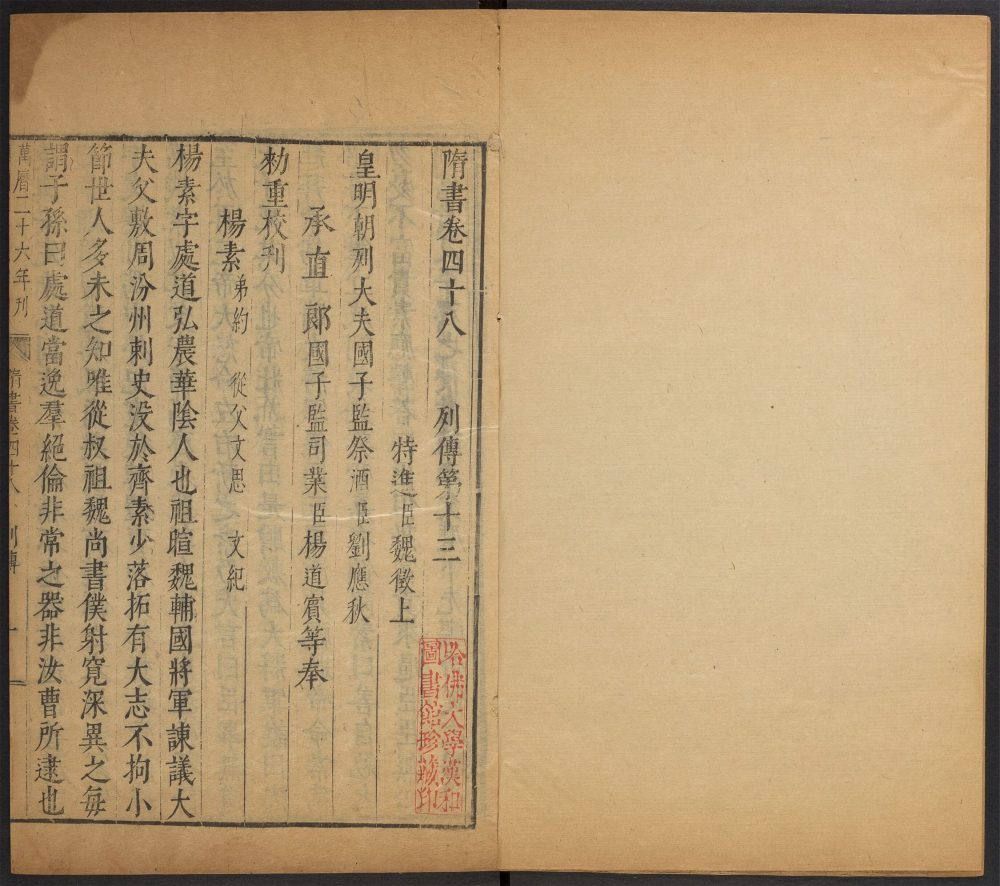 隋書卷四十八　列傳第十三
特進臣魏徵上
皇明朝列大夫國子監祭酒臣劉應秋
承直郎國子監司業臣楊道賓等奉
勑重校刋
楊素　弟約　從父文思　文紀
楊素字處道弘農華陰人也祖暄魏輔國將軍諫議大
夫父敷周汾州刺史没於齊素少落拓有大志不拘小
節世人多未之知唯從叔祖魏尚書僕射寛深異之每
謂子孫曰處道當逸羣絕倫非常之器非汝曹所逮也
萬曆二十六年刋
隋書卷四十八　列傳　一
哈佛大學漢和
圖書館珍藏印